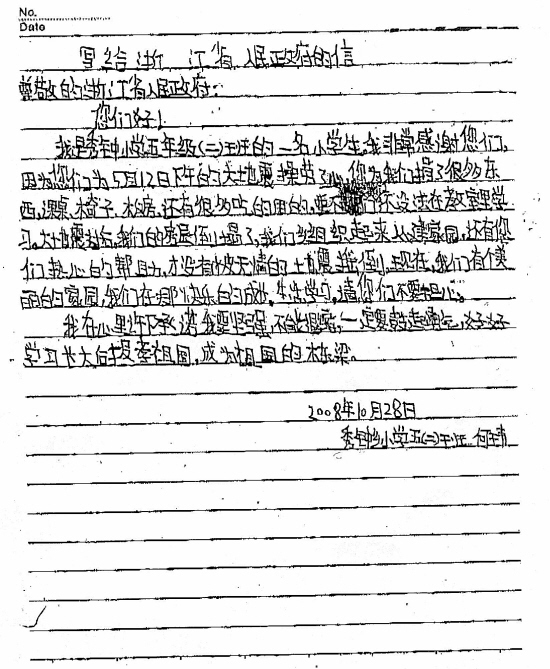 No.
Date
写给浙江省人民政府的信
尊敬的浙江省人民政府:
您们好!
我是秀钟小学五年级(二)班的一名小学生,我非常感谢您们,
因为您们为5月12日下午的大地震操劳了心,您为我们捐了很多东
西,课桌、木奇子、木房,还有很多吃的用的,要不 还没法在教室里学
习。大地震过后,我们的房屋倒塌了,我们组织起来从建家园,还有您
们热心的帮助,才没有被无情的土地震撞倒。现在,我们有个美
丽的家园,我们在那快乐的成长,生活学习,请您们不要担心。
我在心里许下承诺,我要坚强,不能退缩,一定要鼓起勇气,好好
学习长大后报孝祖国,成为祖国的栋梁。
2008年10月28日
秀钟乡小学五(二)班 何玮